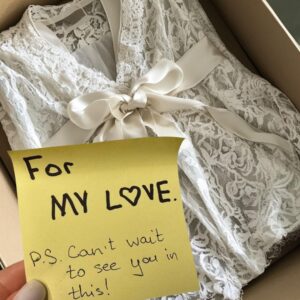 For
MY LOVE.
P.S. Can't wait
to see you in
this!